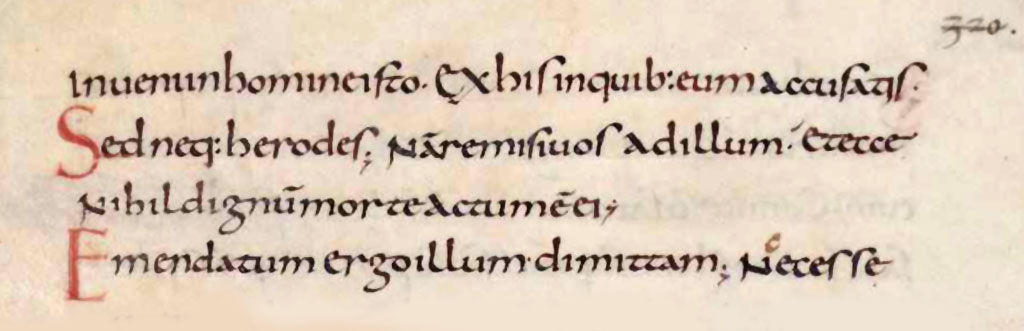 320.
inueniinhomineisto. Exhisinquib:eumaccusatis.
Sedneq:herodes; Nāremisiuos adillum. Etecce
Nihildignūmorteactumēei;
Emendatum ergoillum.dimittam; Necesse